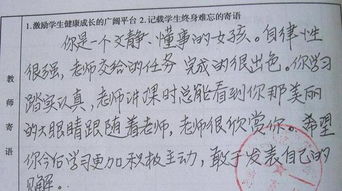 1.激励学生健康成长的广阔平台 2.记载学生终身难忘的寄语
教师寄语
你是一个文静、懂事的女孩。自律性
很强,老师交给的任务 完成的很出色。你学习
踏实认真,老师讲课时总能看到你那美丽
的大眼睛跟随着老师,老师很欣赏你。希望
你今后学习更加积极主动,敢于发表自己的
见解。